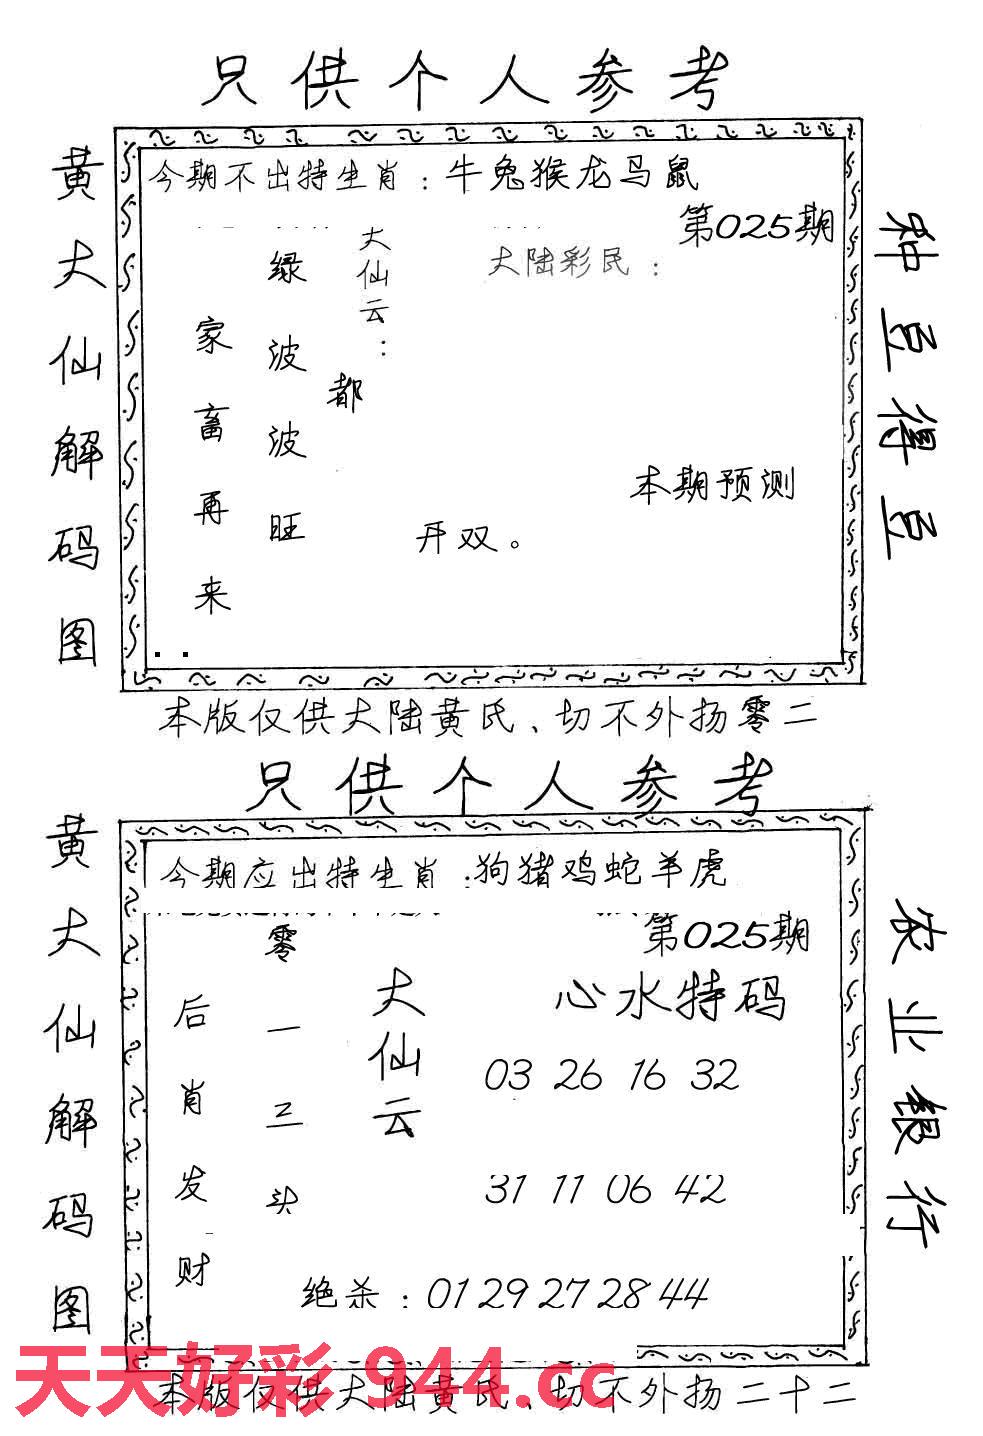 只供个人参考
黄大仙解码图
今期不出特生肖：牛兔猴龙马鼠
第025期
大陆彩民：
大仙云：
都
绿波波旺
家畜再来
开双。
本期预测
种豆得豆
本版仅供大陆黄氏、切不外扬零二
只供个人参考
黄大仙解码图
今期应出特生肖：狗猪鸡蛇羊虎
第025期
心水特码
大仙云
零一三头
后肖发财
03 26 16 32
31 11 06 42
绝杀：01 29 27 28 44
农业银行
天天好彩 944.cc
本版仅供大陆黄氏、切不外扬二十二